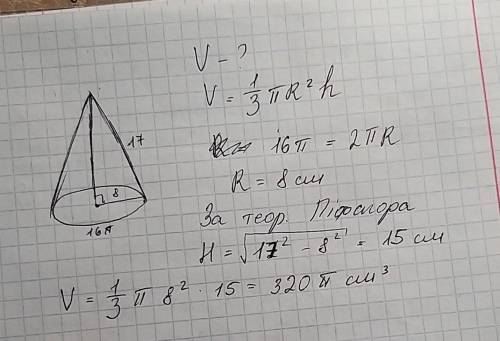 V - ?
V = 1/3 π R² h
16π = 2πR
R = 8 см
17
8
16π
За теор. Піфагора
H = √17² - 8² = 15 см
V = 1/3 π 8² · 15 = 320 π см³